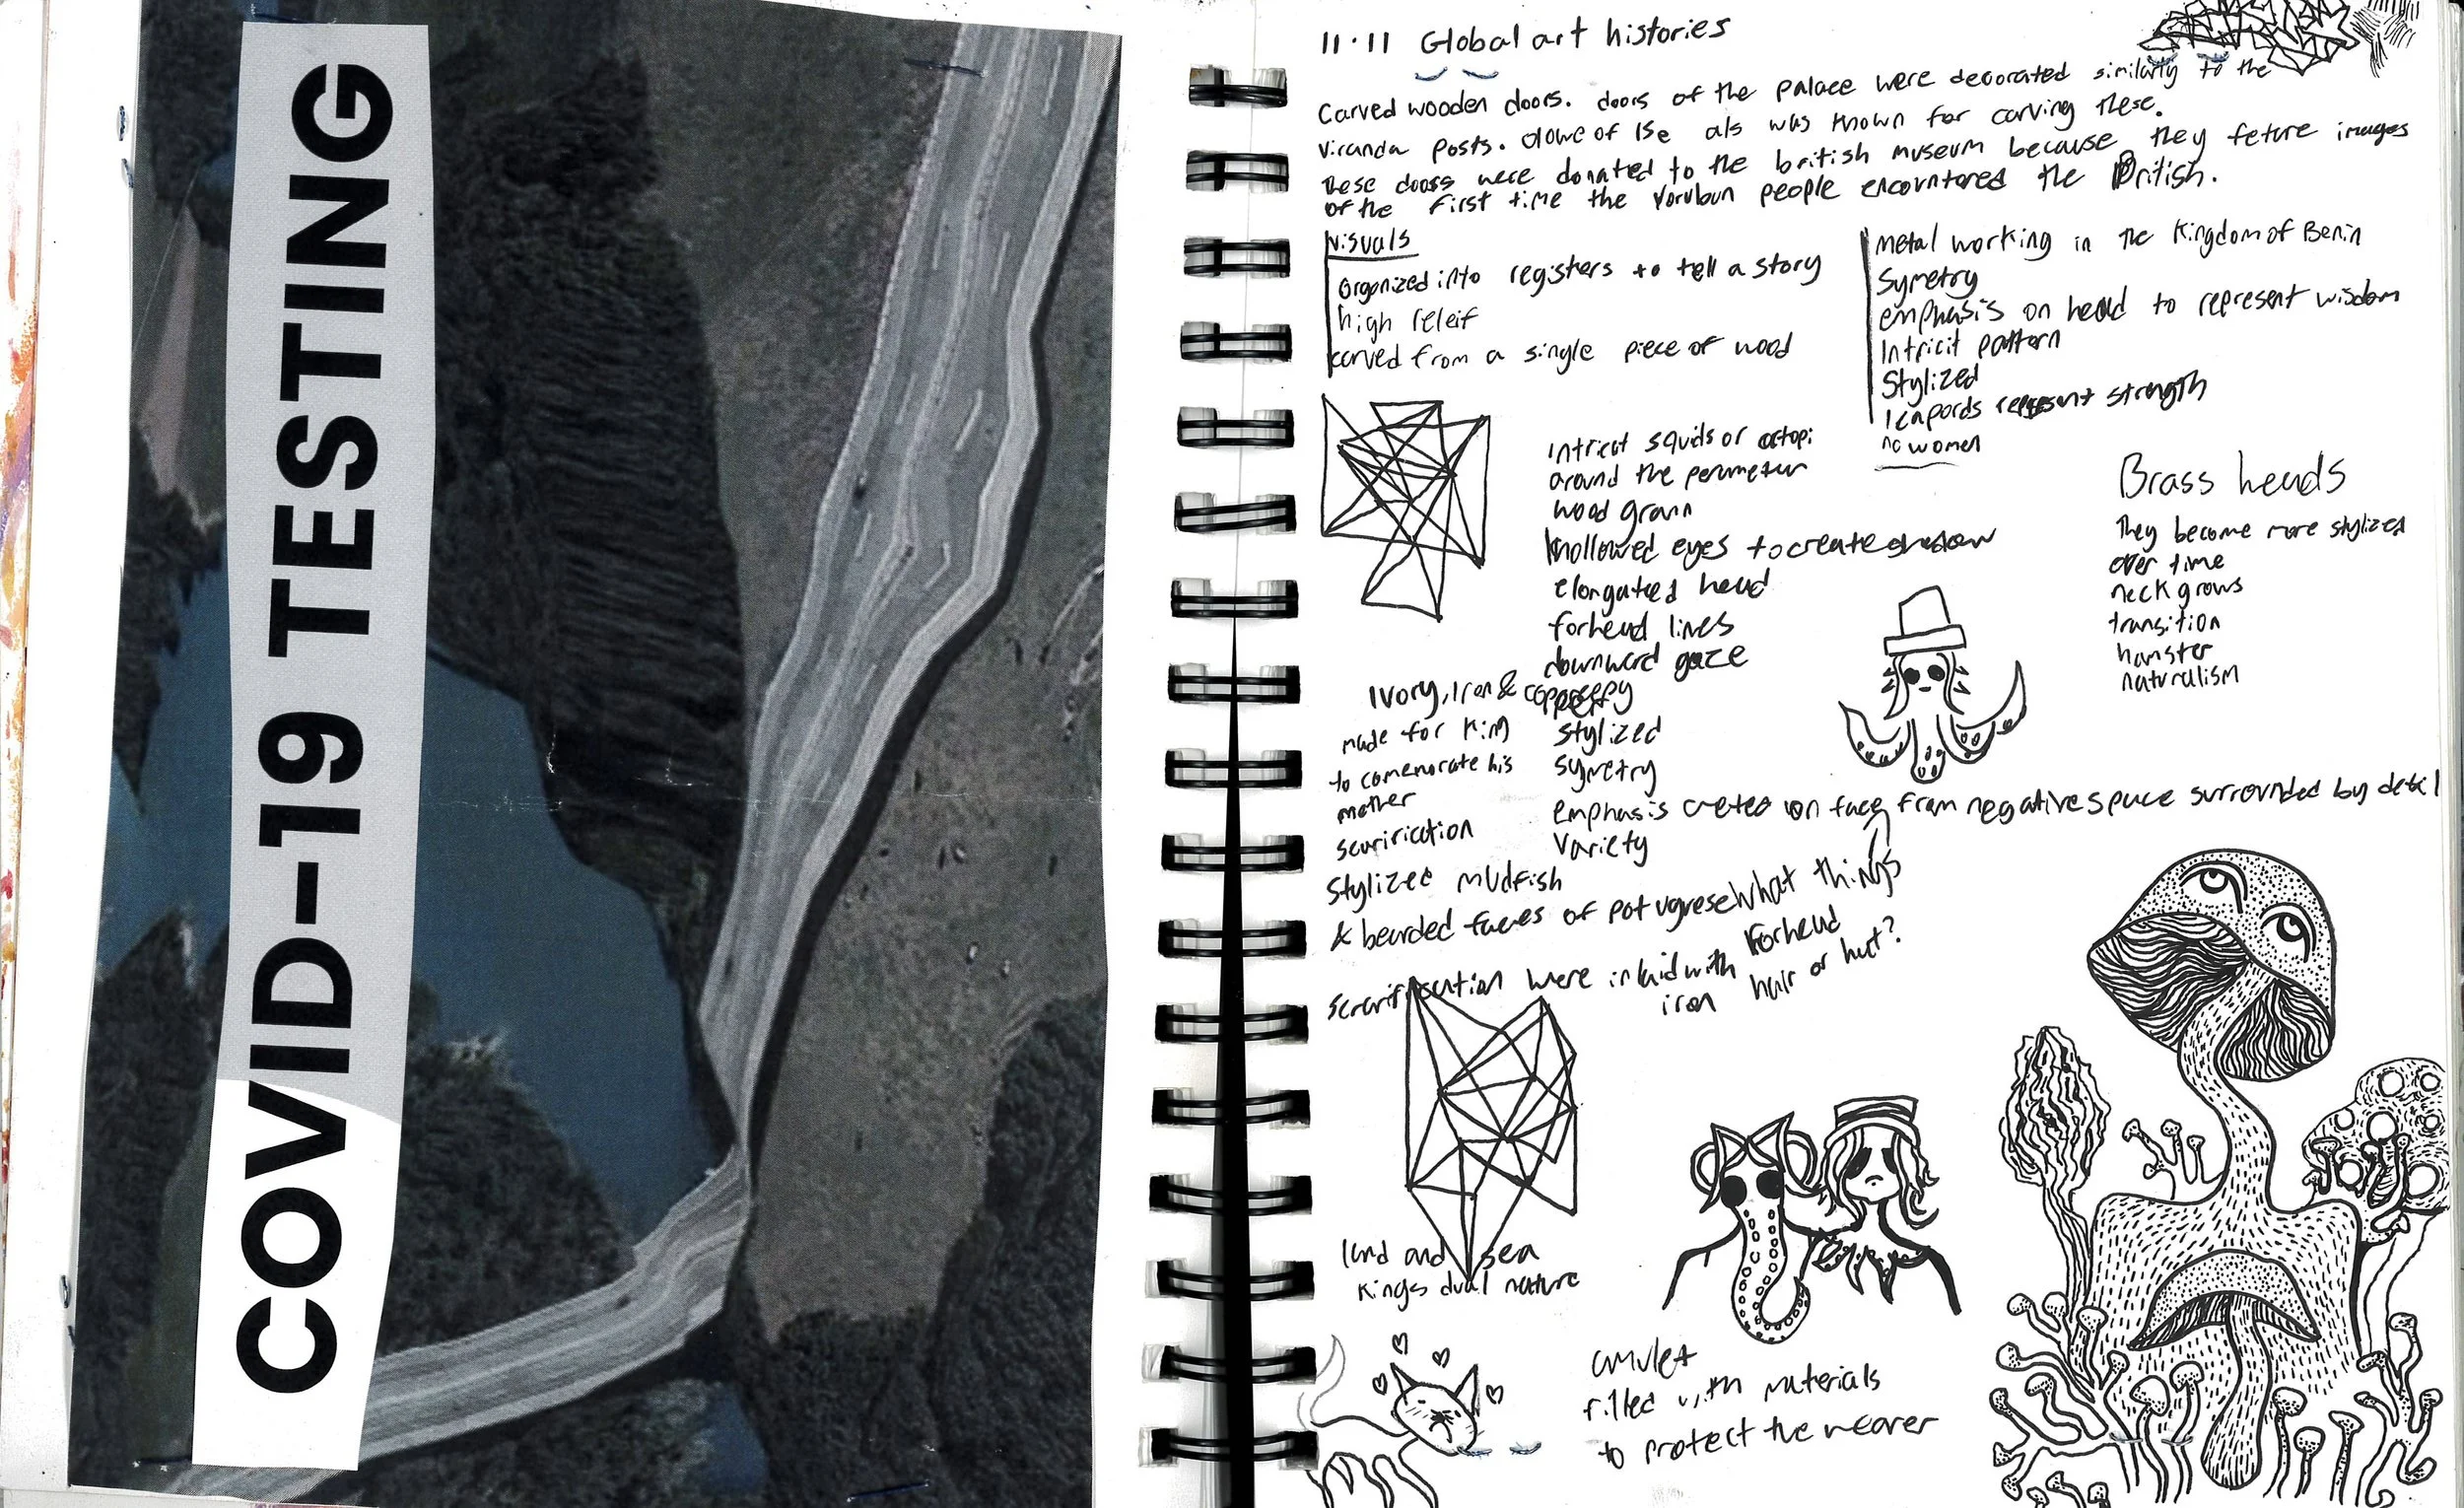 COVID-19 TESTING
11.11 Global art histories
Carved wooden doors. doors of the palace were decorated similarly to the
viranda posts. Olowe of Ise als was known for carving these.
these doors were donated to the british museum because they feture images
of the first time the Yorubun people encountored the British.
Visuals
organized into registers to tell a story
high releif
carved from a single piece of wood
Metal working in the Kingdom of Benin
Symetry
emphasis on head to represent wisdom
Intricit pattern
Stylized
leapords represent strength
no women
Intricat squids or octopi
around the perimeter
wood grain
hollowed eyes to create shadow
elongated head
forhead lines
downward gaze
Brass heads
They become more stylized
over time
neck grows
transition
hamster
naturalism
Ivory, Iron & copper
made for King
to comemorate his
mother
scarirication
Stylized mudfish
& bearded faces of potugrese
scarification were inlaid with
iron
stylized
symetry
emphasis creted on face from negative space surrounded by detail
Variety
What things
Forhead
hair or hat?
land and sea
Kings dual nature
amulet
filled with materials
to protect the wearer